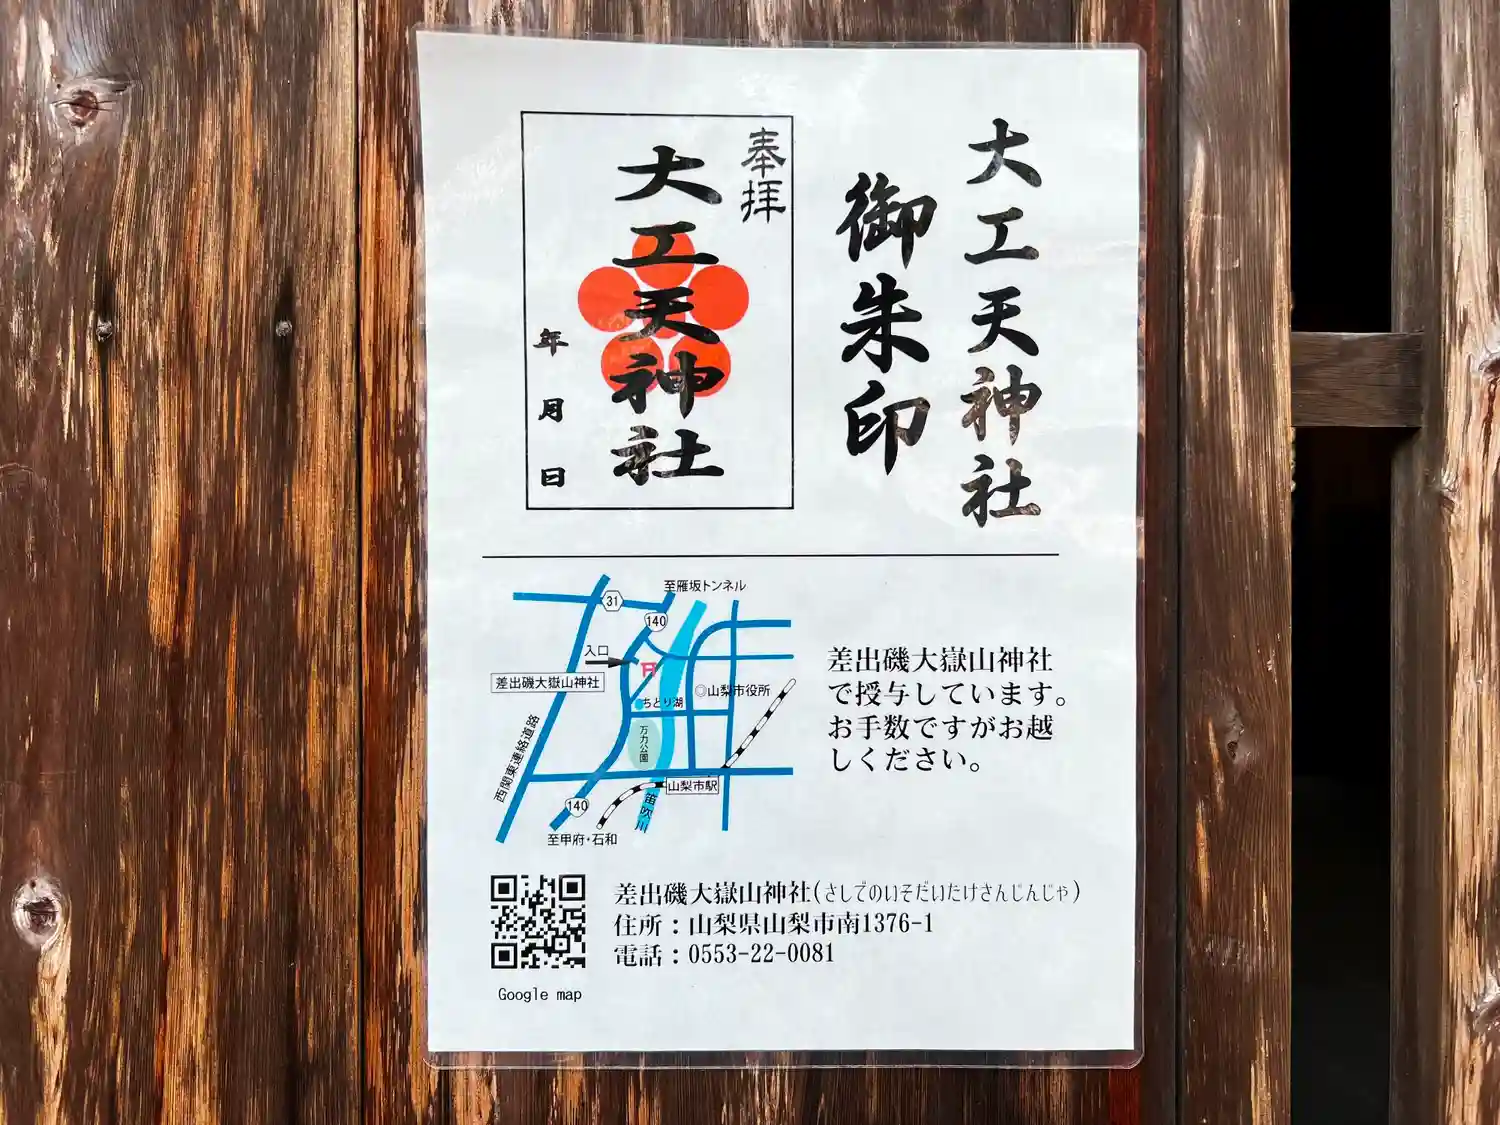 大工天神社
御朱印
奉拝
大工天神社
年 月 日
至雁坂トンネル
31
140
入口
差出磯大嶽山神社
◎山梨市役所
ちどり湖
万力公園
西関東連絡道路
山梨市駅
笛吹川
140
至甲府・石和
差出磯大嶽山神社
で授与しています。
お手数ですがお越
しください。
差出磯大嶽山神社(さしでのいそだいたけさんじんじゃ)
住所：山梨県山梨市南1376-1
電話：0553-22-0081
Google map